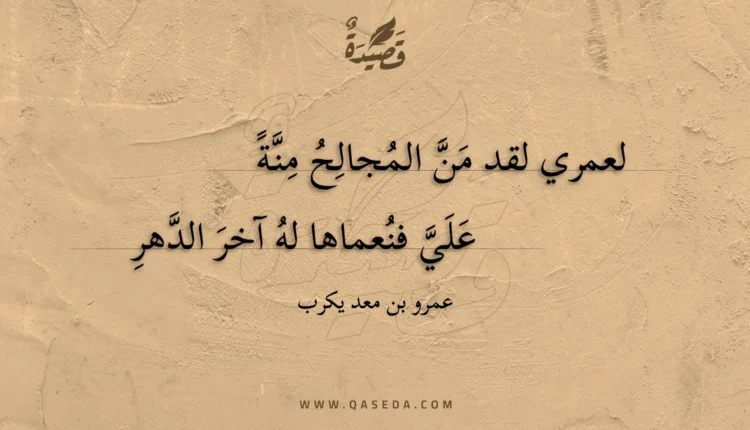 قَصِيْدَةٌ
لعمري لقد مَنَّ المُجالِحُ مِنَّةً
عَلَيَّ فنُعماها لهُ آخرَ الدَّهرِ
عمرو بن معد يكرب
WWW.QASEDA.COM